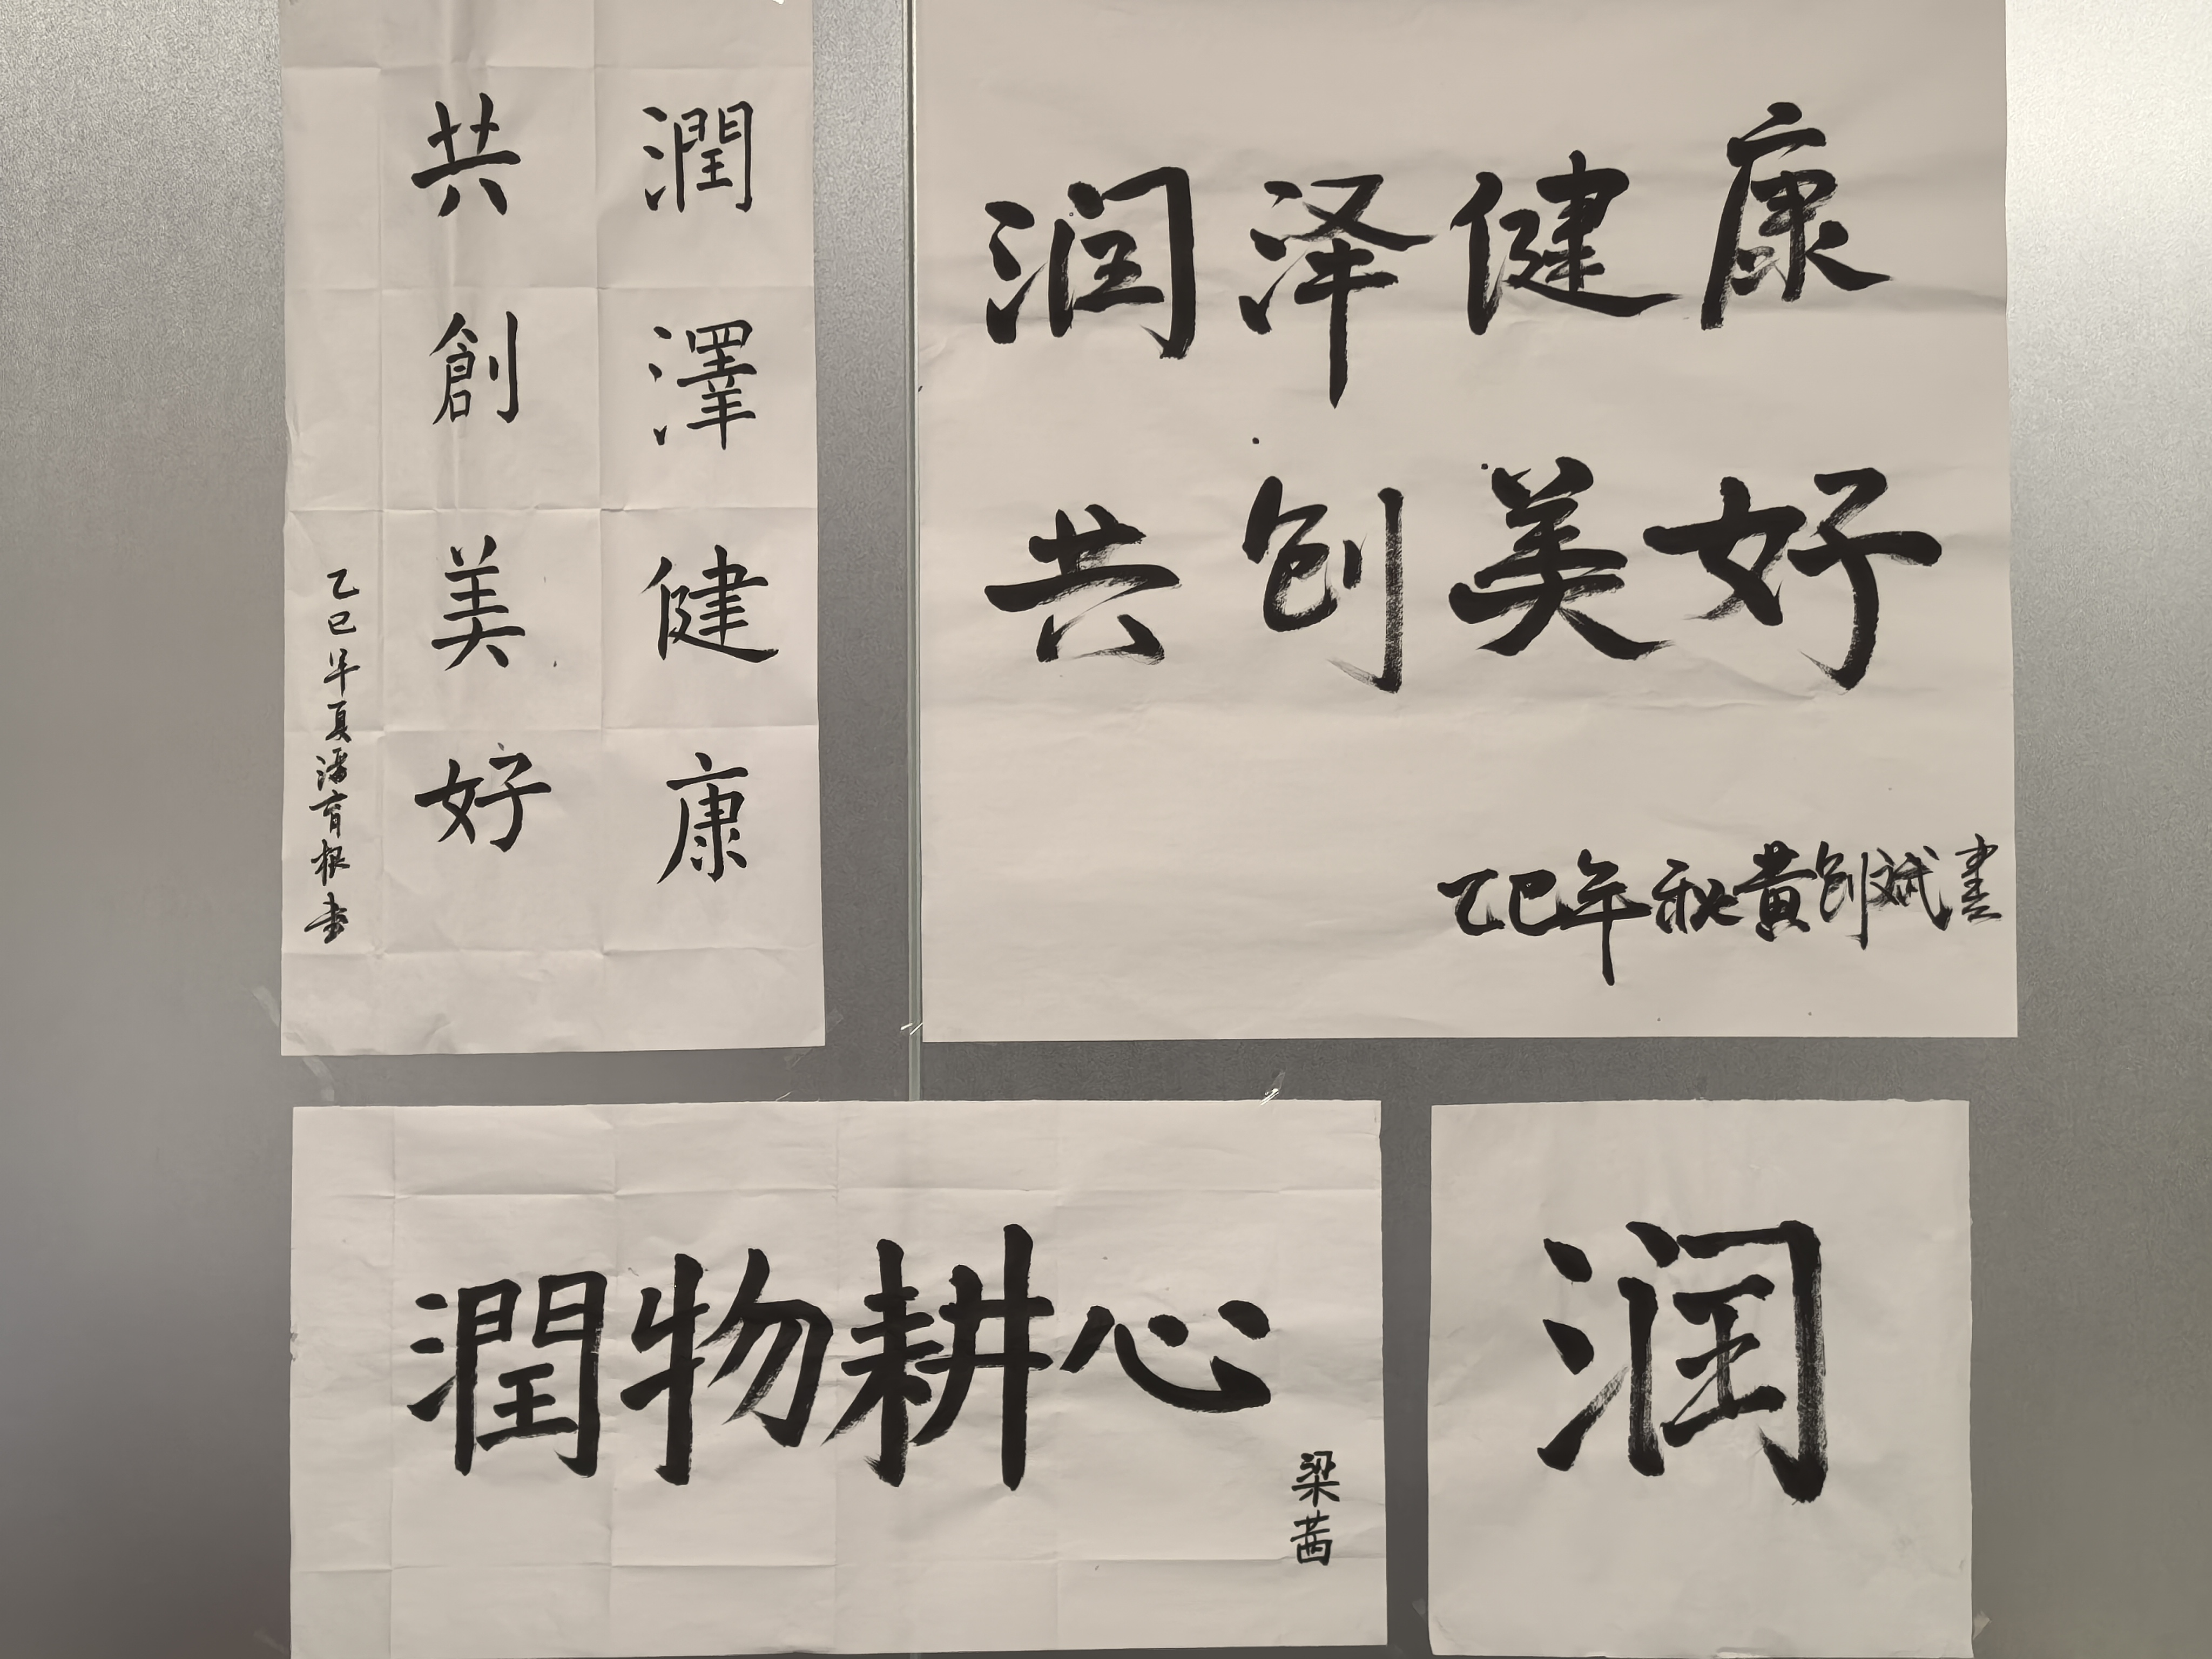 潤澤健康
共創美好
乙巳年夏潘育根書
润泽健康
共创美好
乙巳年秋黄创斌書
潤物耕心
梁茜
润